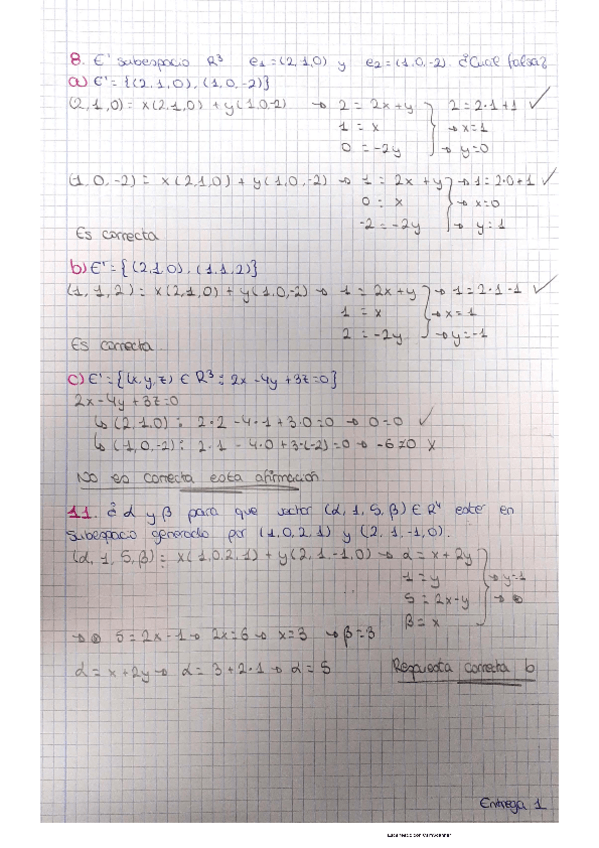 8. E' subespacio R³ e₁=(2,1,0) y e₂=(1,0,-2). ¿Cuál falsa?
a) E'={(2,1,0),(1,0,-2)}
(2,1,0)= x(2,1,0)+y(1,0-2) → 2=2x+y 2=2·1+1 ✓
1=x → x=1
0=-2y → y=0
(1,0,-2)= x(2,1,0)+y(1,0,-2) → 1=2x+y → 1=2·0+1 ✓
0=x → x=0
-2=-2y → y=1
Es correcta
b) E'={(2,1,0),(1,1,2)}
(1,1,2)= x(2,1,0)+y(1,0,-2) → 1=2x+y → 1=2·1-1 ✓
1=x → x=1
2=-2y → y=-1
Es correcta
c) E'={(x,y,z) ∈ R³: 2x-4y+3z=0}
2x-4y+3z=0
↳ (2,1,0): 2·2-4·1+3·0=0 → 0=0 ✓
↳ (1,0,-2): 2·1-4·0+3·(-2)=0 → -6≠0 X
No es correcta esta afirmación
11. ¿α y β para que vector (α,1,5,β) ∈ R⁴ este en
subespacio generado por (1,0,2,1) y (2,1,-1,0).
(α,1,5,β)= x(1,0,2,1)+y(2,1,-1,0) → α=x+2y
1=y → y=1
5=2x-y →
β=x
→ 5=2x-1 → 2x=6 → x=3 → β=3
α=x+2y → α=3+2·1 → α=5 Respuesta correcta b
Entrega 1